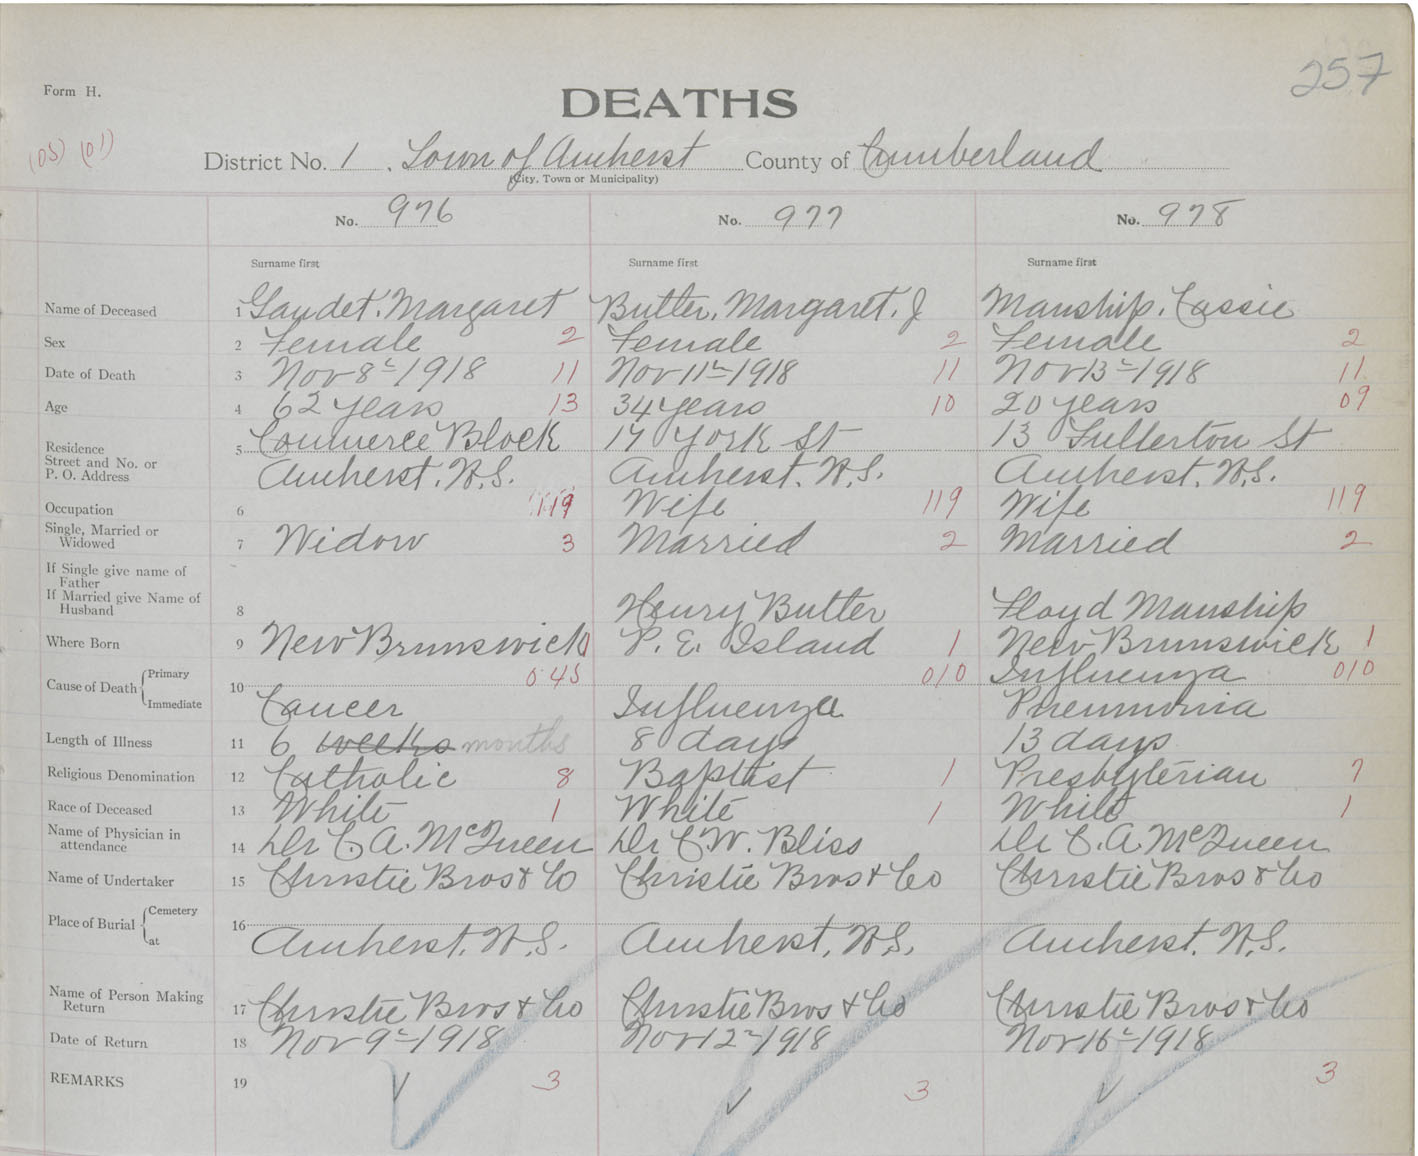 257
Form H.
DEATHS
(05) (01)
District No. 1. Town of Amherst County of Cumberland
(City, Town or Municipality)
No. 976 No. 977 No. 978
Surname first Surname first Surname first
Name of Deceased 1 Gaudet, Margaret Butter, Margaret. J Manship, Cassie
Sex 2 Female 2 Female 2 Female 2
Date of Death 3 Nov 8th 1918 11 Nov 11th 1918 11 Nov 13th 1918 11
Age 4 62 years 13 34 years 10 20 years 09
Residence 5 Commerce Block 17 York St 13 Fullerton St
Street and No. or
P. O. Address Amherst. N.S. Amherst. N.S. Amherst. N.S.
Occupation 6 119 Wife 119 Wife 119
Single, Married or
Widowed 7 Widow 3 Married 2 Married 2
If Single give name of
Father
If Married give Name of
Husband 8 Henry Butter Floyd Manship
Where Born 9 New Brunswick 1 P. E. Island 1 New Brunswick 1
Cause of Death Primary 045 010 Influenza 010
10
Immediate Cancer Influenza Pneumonia
Length of Illness 11 6 weeks months 8 days 13 days
Religious Denomination 12 Catholic 8 Baptist 1 Presbyterian 7
Race of Deceased 13 White 1 White 1 White 1
Name of Physician in
attendance 14 Dr C. A. McQueen Dr C. W. Bliss Dr C. A. McQueen
Name of Undertaker 15 Christie Bros & Co Christie Bros & Co Christie Bros & Co
Place of Burial Cemetery
16
at Amherst. N.S. Amherst. N.S. Amherst. N.S.
Name of Person Making
Return 17 Christie Bros & Co Christie Bros & Co Christie Bros & Co
Date of Return 18 Nov 9th 1918 Nov 12th 1918 Nov 16th 1918
REMARKS 19 ✓ 3 ✓ 3 ✓ 3